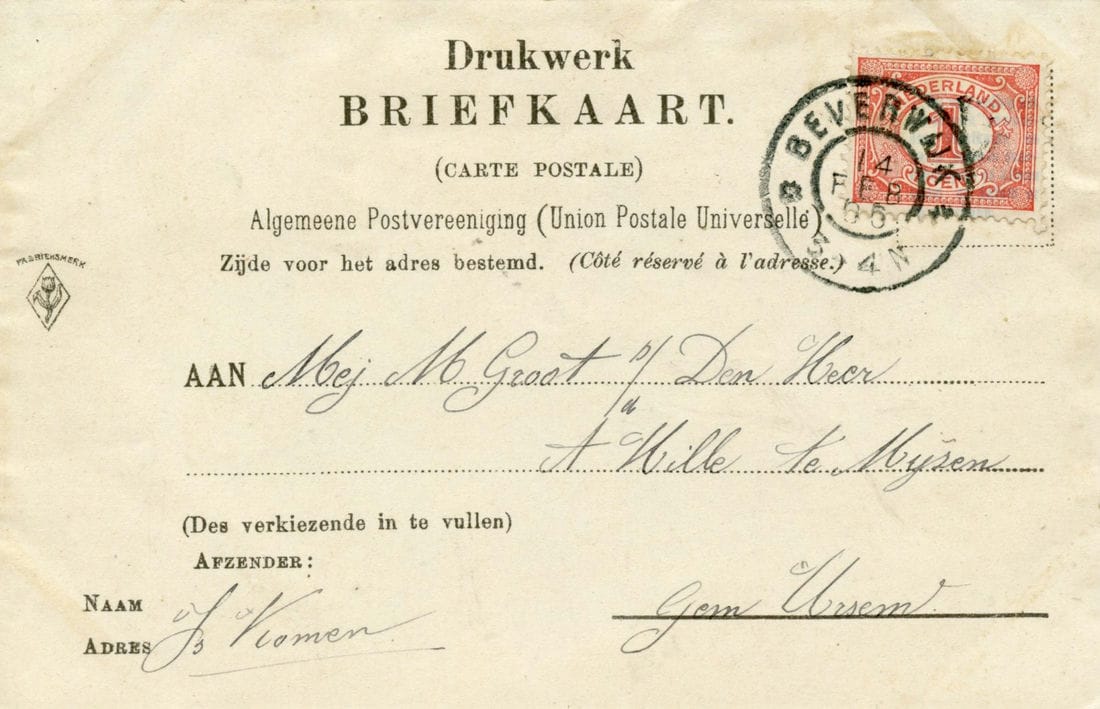 Drukwerk
BRIEFKAART.
(CARTE POSTALE)
Algemeene Postvereeniging (Union Postale Universelle)
Zijde voor het adres bestemd. (Côté réservé à l'adresse.)
NEDERLAND
1
CENT
BEVERWIJK
14
FEB
05
3-4N
FABRIEKSMERK
AAN Mej M Groot p/a Den Heer
A Hille te Mijzen
(Des verkiezende in te vullen)
AFZENDER:
NAAM
ADRES Js Kromen
Gem Ursem